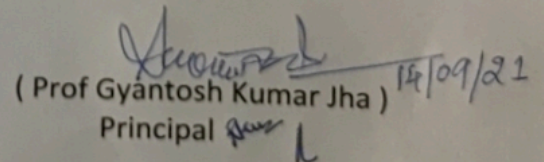 14/09/21
( Prof Gyantosh Kumar Jha )
Principal